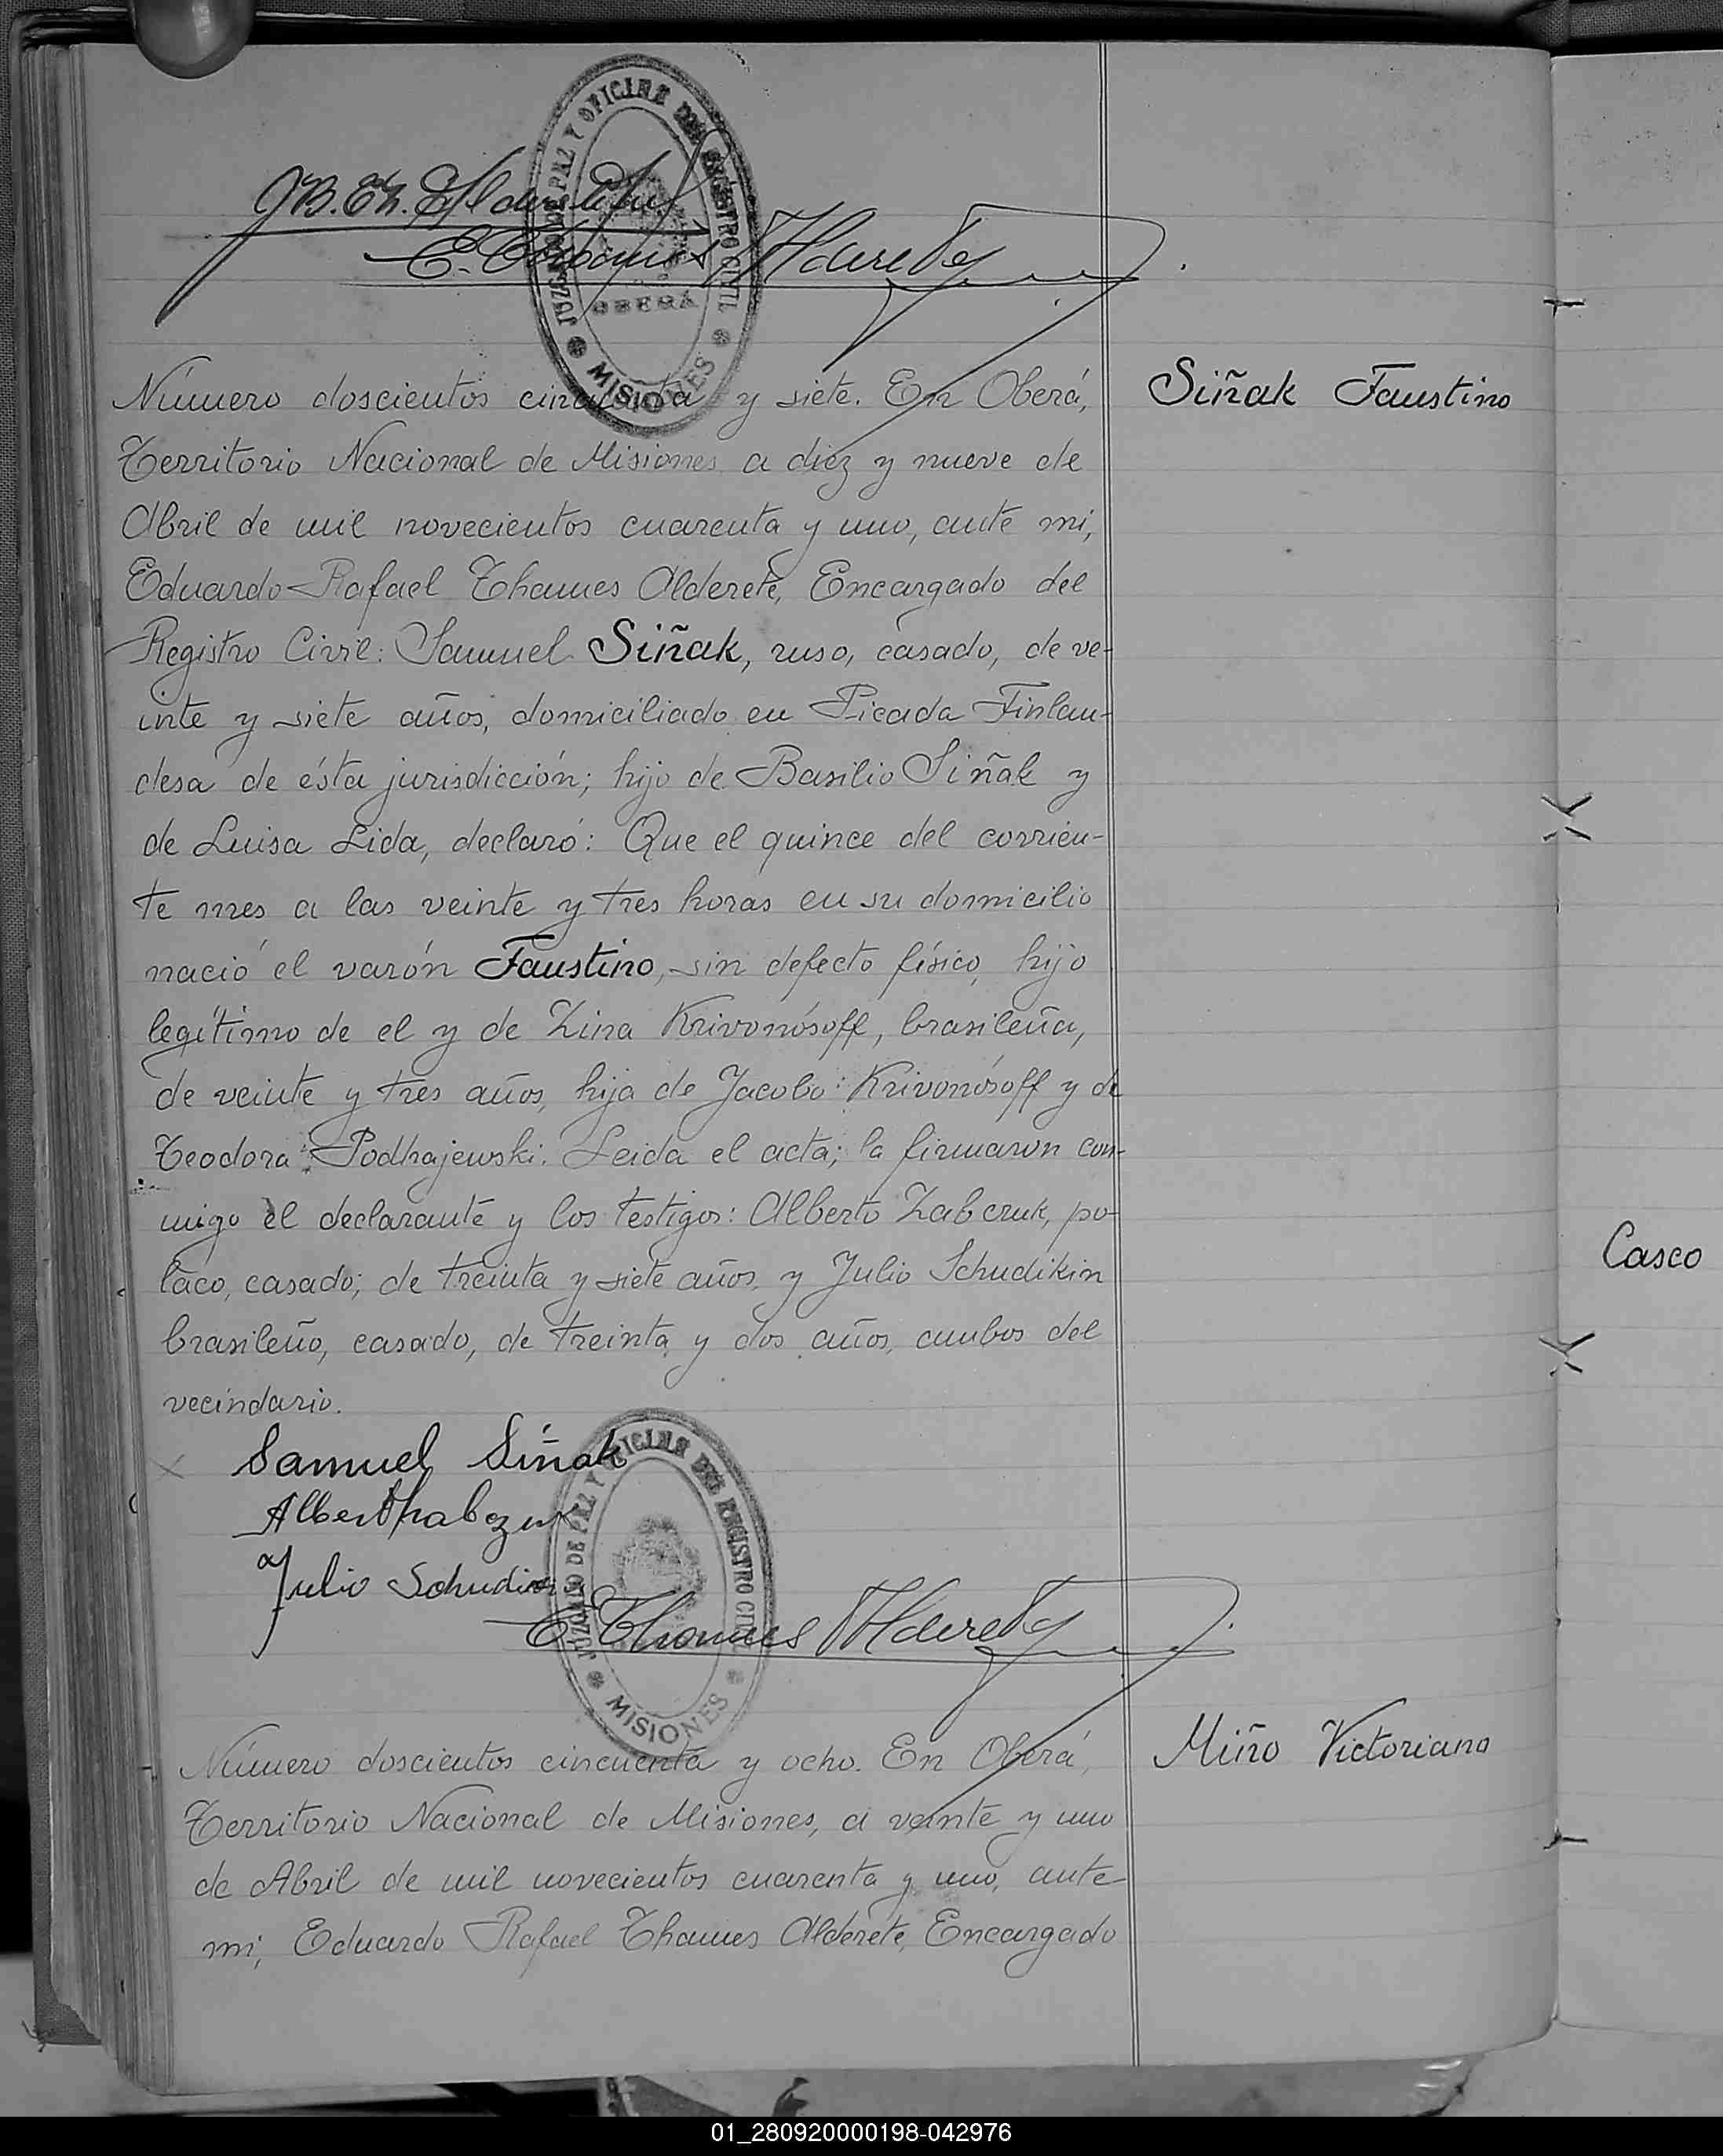 JUZGADO DE PAZ Y OFICINA DEL REGISTRO CIVIL
OBERÁ
MISIONES
Número doscientos cincuenta y siete. En Oberá,
Siñak Faustino
Territorio Nacional de Misiones a diez y nueve de
Abril de mil novecientos cuarenta y uno, ante mi,
Eduardo Rafael Thames Alderete, Encargado del
Registro Civil: Samuel Siñak, ruso, casado, de ve-
inte y siete años, domiciliado en Picada Finlan-
desa de ésta jurisdicción; hijo de Basilio Siñak y
de Luisa Lida, declaró: Que el quince del corrien-
te mes a las veinte y tres horas en su domicilio
nació el varón Faustino, sin defecto físico, hijo
legítimo de el y de Zina Krivonósoff, brasileña,
de veinte y tres años, hija de Jacobo Krivonósoff y de
Teodora Podhajewski. Leida el acta; la firmaron con-
migo el declarante y los testigos: Alberto Zabczuk, po-
laco, casado; de treinta y siete años, y Julio Schudikin
brasileño, casado, de treinta y dos años, ambos del
vecindario.
Casco
Samuel Siñak
Julio
JUZGADO DE PAZ Y OFICINA DEL REGISTRO CIVIL
E. Thames Alderete
MISIONES
Número doscientos cincuenta y ocho. En Oberá,
Miño Victoriano
Territorio Nacional de Misiones, a veinte y uno
de Abril de mil novecientos cuarenta y uno, ante
mi, Eduardo Rafael Thames Alderete, Encargado
01_280920000198-042976